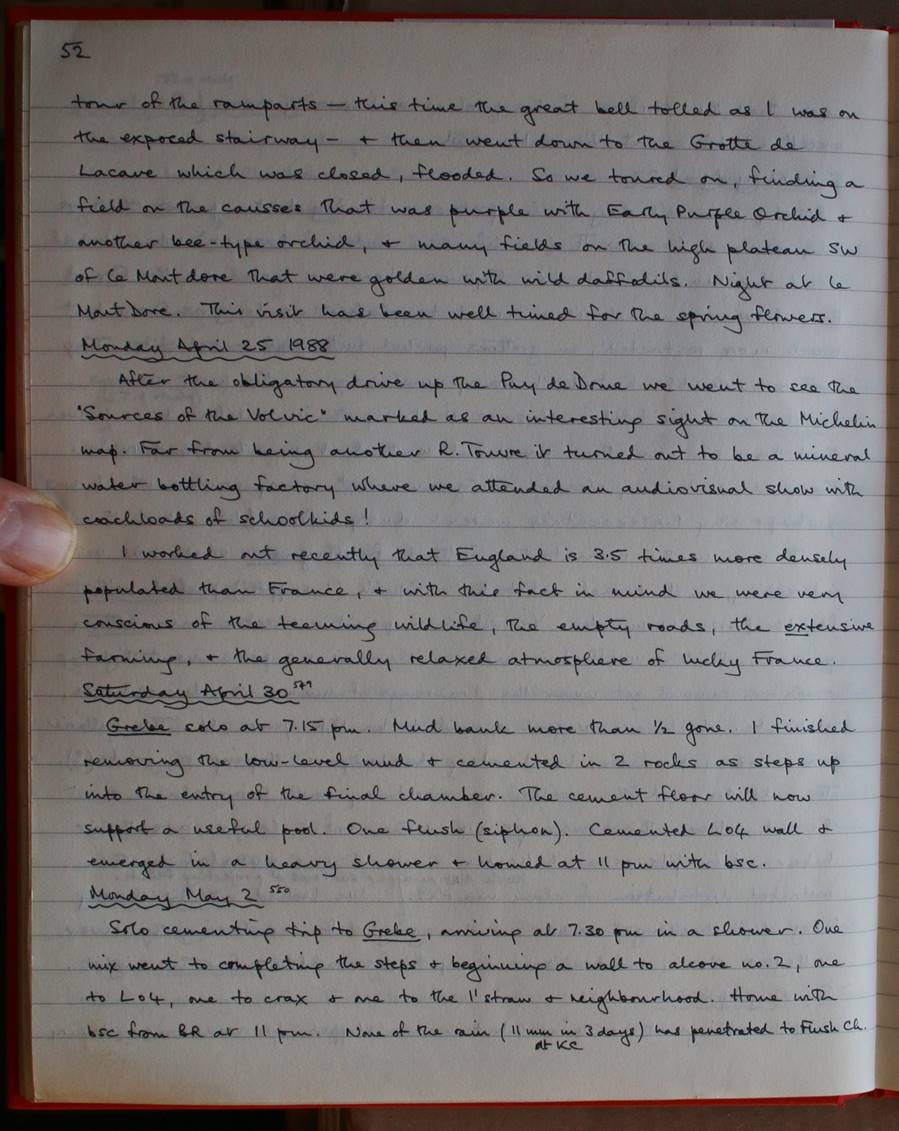 52
tour of the ramparts – this time the great bell tolled as I was on
the exposed stairway – + then went down to the Grotte de
Lacave which was closed, flooded. So we toured on, finding a
field on the causses that was purple with Early Purple Orchid +
another bee-type orchid, + many fields on the high plateau SW
of le Mont dore that were golden with wild daffodils. Night at le
Mont Dore. This visit has been well timed for the spring flowers.
Monday April 25 1988
After the obligatory drive up the Puy de Dome we went to see the
"Sources of the Volvic" marked as an interesting sight on the Michelin
map. Far from being another R. Touvre it turned out to be a mineral
water bottling factory where we attended an audiovisual show with
coachloads of schoolkids!
I worked out recently that England is 3.5 times more densely
populated than France, + with this fact in mind we were very
conscious of the teeming wildlife, the empty roads, the extensive
farming, + the generally relaxed atmosphere of lucky France.
Saturday April 30 549
Grebe solo at 7.15 pm. Mud bank more than ½ gone. I finished
removing the low-level mud + cemented in 2 rocks as steps up
into the entry of the final chamber. The cement floor will now
support a useful pool. One flush (siphon). Cemented L04 wall +
emerged in a heavy shower + homed at 11 pm with bsc.
Monday May 2 550
Solo cementing trip to Grebe, arriving at 7.30 pm in a shower. One
mix went to completing the steps + beginning a wall to alcove no. 2, one
to L04, one to crax + one to the 1' straw + neighbourhood. Home with
bsc from BR at 11 pm. None of the rain (11 mm in 3 days) has penetrated to Flush Ch.
at KC